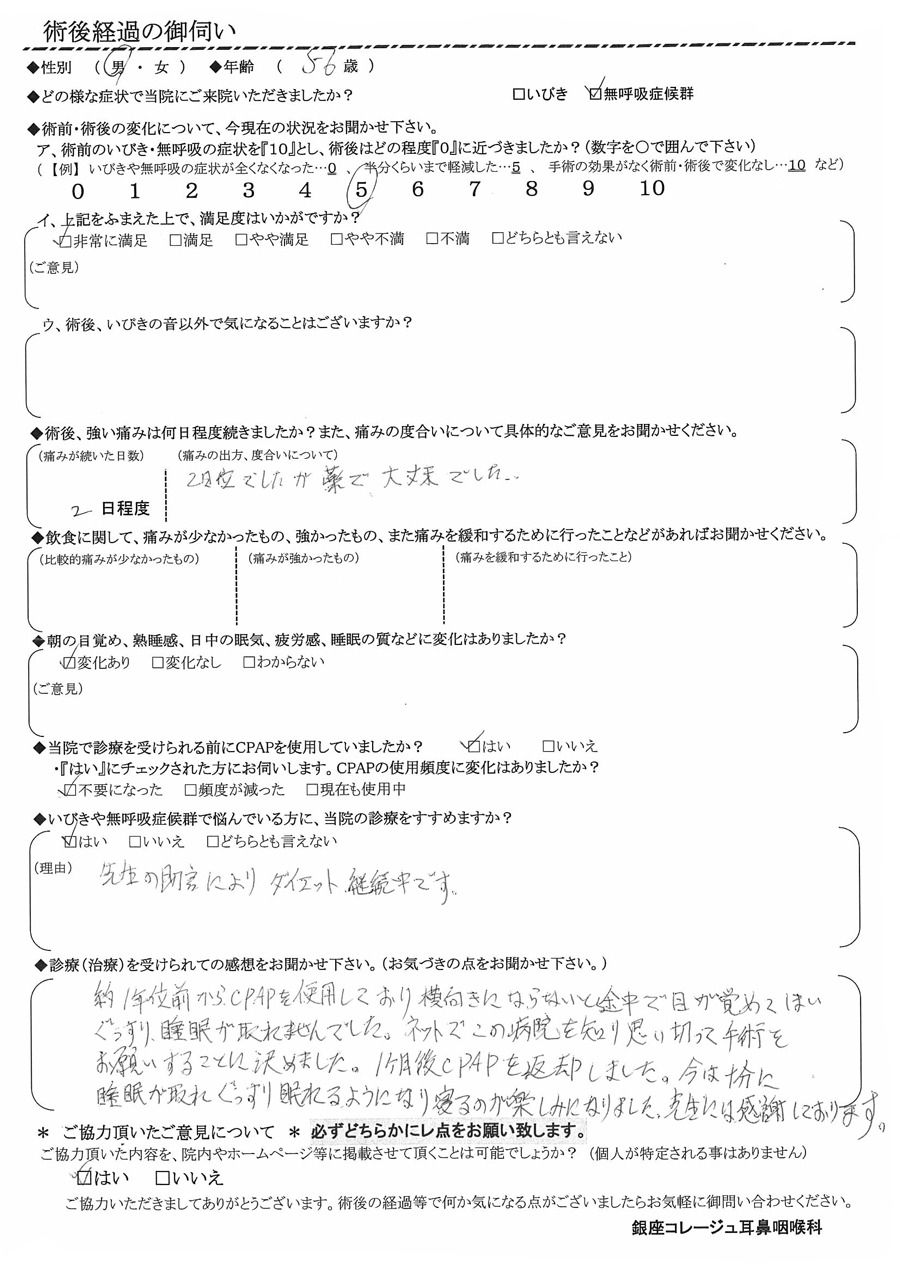 術後経過の御伺い
◆性別 ( 男 ・ 女 ) ◆年齢 ( 56 歳 )
◆どの様な症状で当院にご来院いただきましたか? □いびき ☑無呼吸症候群
◆術前・術後の変化について、今現在の状況をお聞かせ下さい。
ア、術前のいびき・無呼吸の症状を『10』とし、術後はどの程度『0』に近づきましたか?(数字を〇で囲んで下さい)
(【例】いびきや無呼吸の症状が全くなくなった…0 、 半分くらいまで軽減した…5 、 手術の効果がなく術前・術後で変化なし…10 など)
0 1 2 3 4 5 6 7 8 9 10
イ、上記をふまえた上で、満足度はいかがですか?
☑非常に満足 □満足 □やや満足 □やや不満 □不満 □どちらとも言えない
(ご意見)
ウ、術後、いびきの音以外で気になることはございますか?
◆術後、強い痛みは何日程度続きましたか?また、痛みの度合いについて具体的なご意見をお聞かせください。
(痛みが続いた日数) (痛みの出方、度合いについて)
2日位でしたが薬で、大丈夫でした..
2 日程度
◆飲食に関して、痛みが少なかったもの、強かったもの、また痛みを緩和するために行ったことなどがあればお聞かせください。
(比較的痛みが少なかったもの) (痛みが強かったもの) (痛みを緩和するために行ったこと)
◆朝の目覚め、熟睡感、日中の眠気、疲労感、睡眠の質などに変化はありましたか?
☑変化あり □変化なし □わからない
(ご意見)
◆当院で診療を受けられる前にCPAPを使用していましたか? ☑はい □いいえ
・『はい』にチェックされた方にお伺いします。CPAPの使用頻度に変化はありましたか?
☑不要になった □頻度が減った □現在も使用中
◆いびきや無呼吸症候群で悩んでいる方に、当院の診療をすすめますか?
☑はい □いいえ □どちらとも言えない
(理由) 先生の助言により ダイエット 継続中です。
◆診療(治療)を受けられての感想をお聞かせ下さい。(お気づきの点をお聞かせ下さい。)
約1年位前からCPAPを使用しており横向きにならないと途中で目が覚めてしまい
ぐっすり、睡眠が取れませんでした。ネットでこの病院を知り思い切って手術を
お願いすることに決めました。1ケ月後CPAPを返却しました。今は十分に
睡眠が取れぐっすり眠れるようになり寝るのが楽しみになりました、先生には感謝しております。
＊ ご協力頂いたご意見について ＊ 必ずどちらかにレ点をお願い致します。
ご協力頂いた内容を、院内やホームページ等に掲載させて頂くことは可能でしょうか? (個人が特定される事はありません)
☑はい □いいえ
ご協力いただきましてありがとうございます。術後の経過等で何か気になる点がございましたらお気軽に御問い合わせください。
銀座コレージュ耳鼻咽喉科